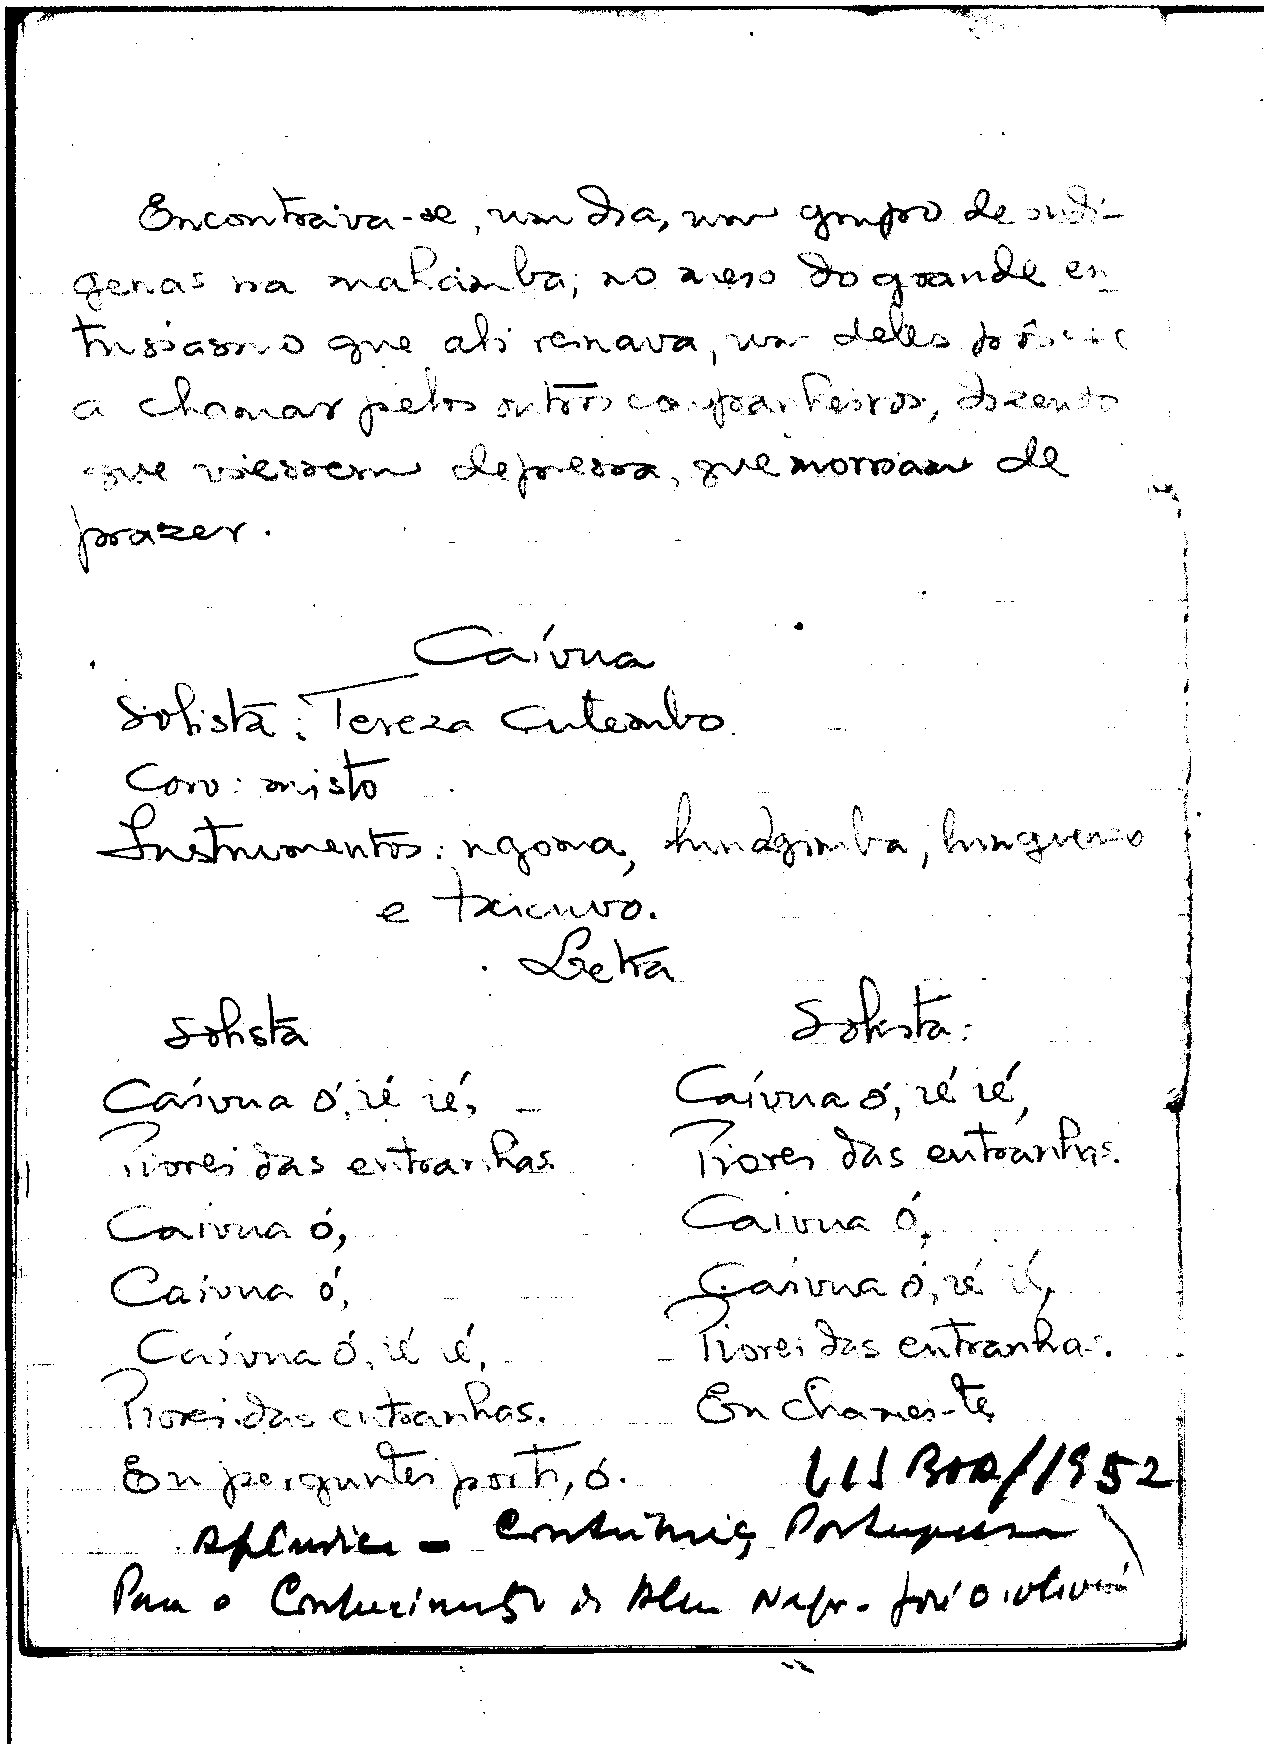 Encontrava-se, um dia, um grupo de indí-
genas na mahamba; no meio do grande en-
tusiasmo que ali reinava, um deles pôs-se
a chamar pelos outros companheiros, dizendo
que viessem depressa, que morriam de
prazer.
Caívua
Solista: Tereza Cutembo
Coro: misto
Instrumentos: ngoma, lungueno
e txicuvo.
Letra
Solista
Caívua ó, ié ié,
Piorei das entranhas.
Caívua ó,
Caívua ó,
Caívua ó, ié ié,
Piorei das entranhas.
Eu perguntei por ti, ó.
Solista:
Caívua ó, ié ié,
Piorei das entranhas.
Caívua ó,
Caívua ó, ié ié,
Piorei das entranhas.
Eu chamei-te,
LISBOA/1952
Apêndice - Portuguesa
Para o Conhecimento da Alma Negra - José